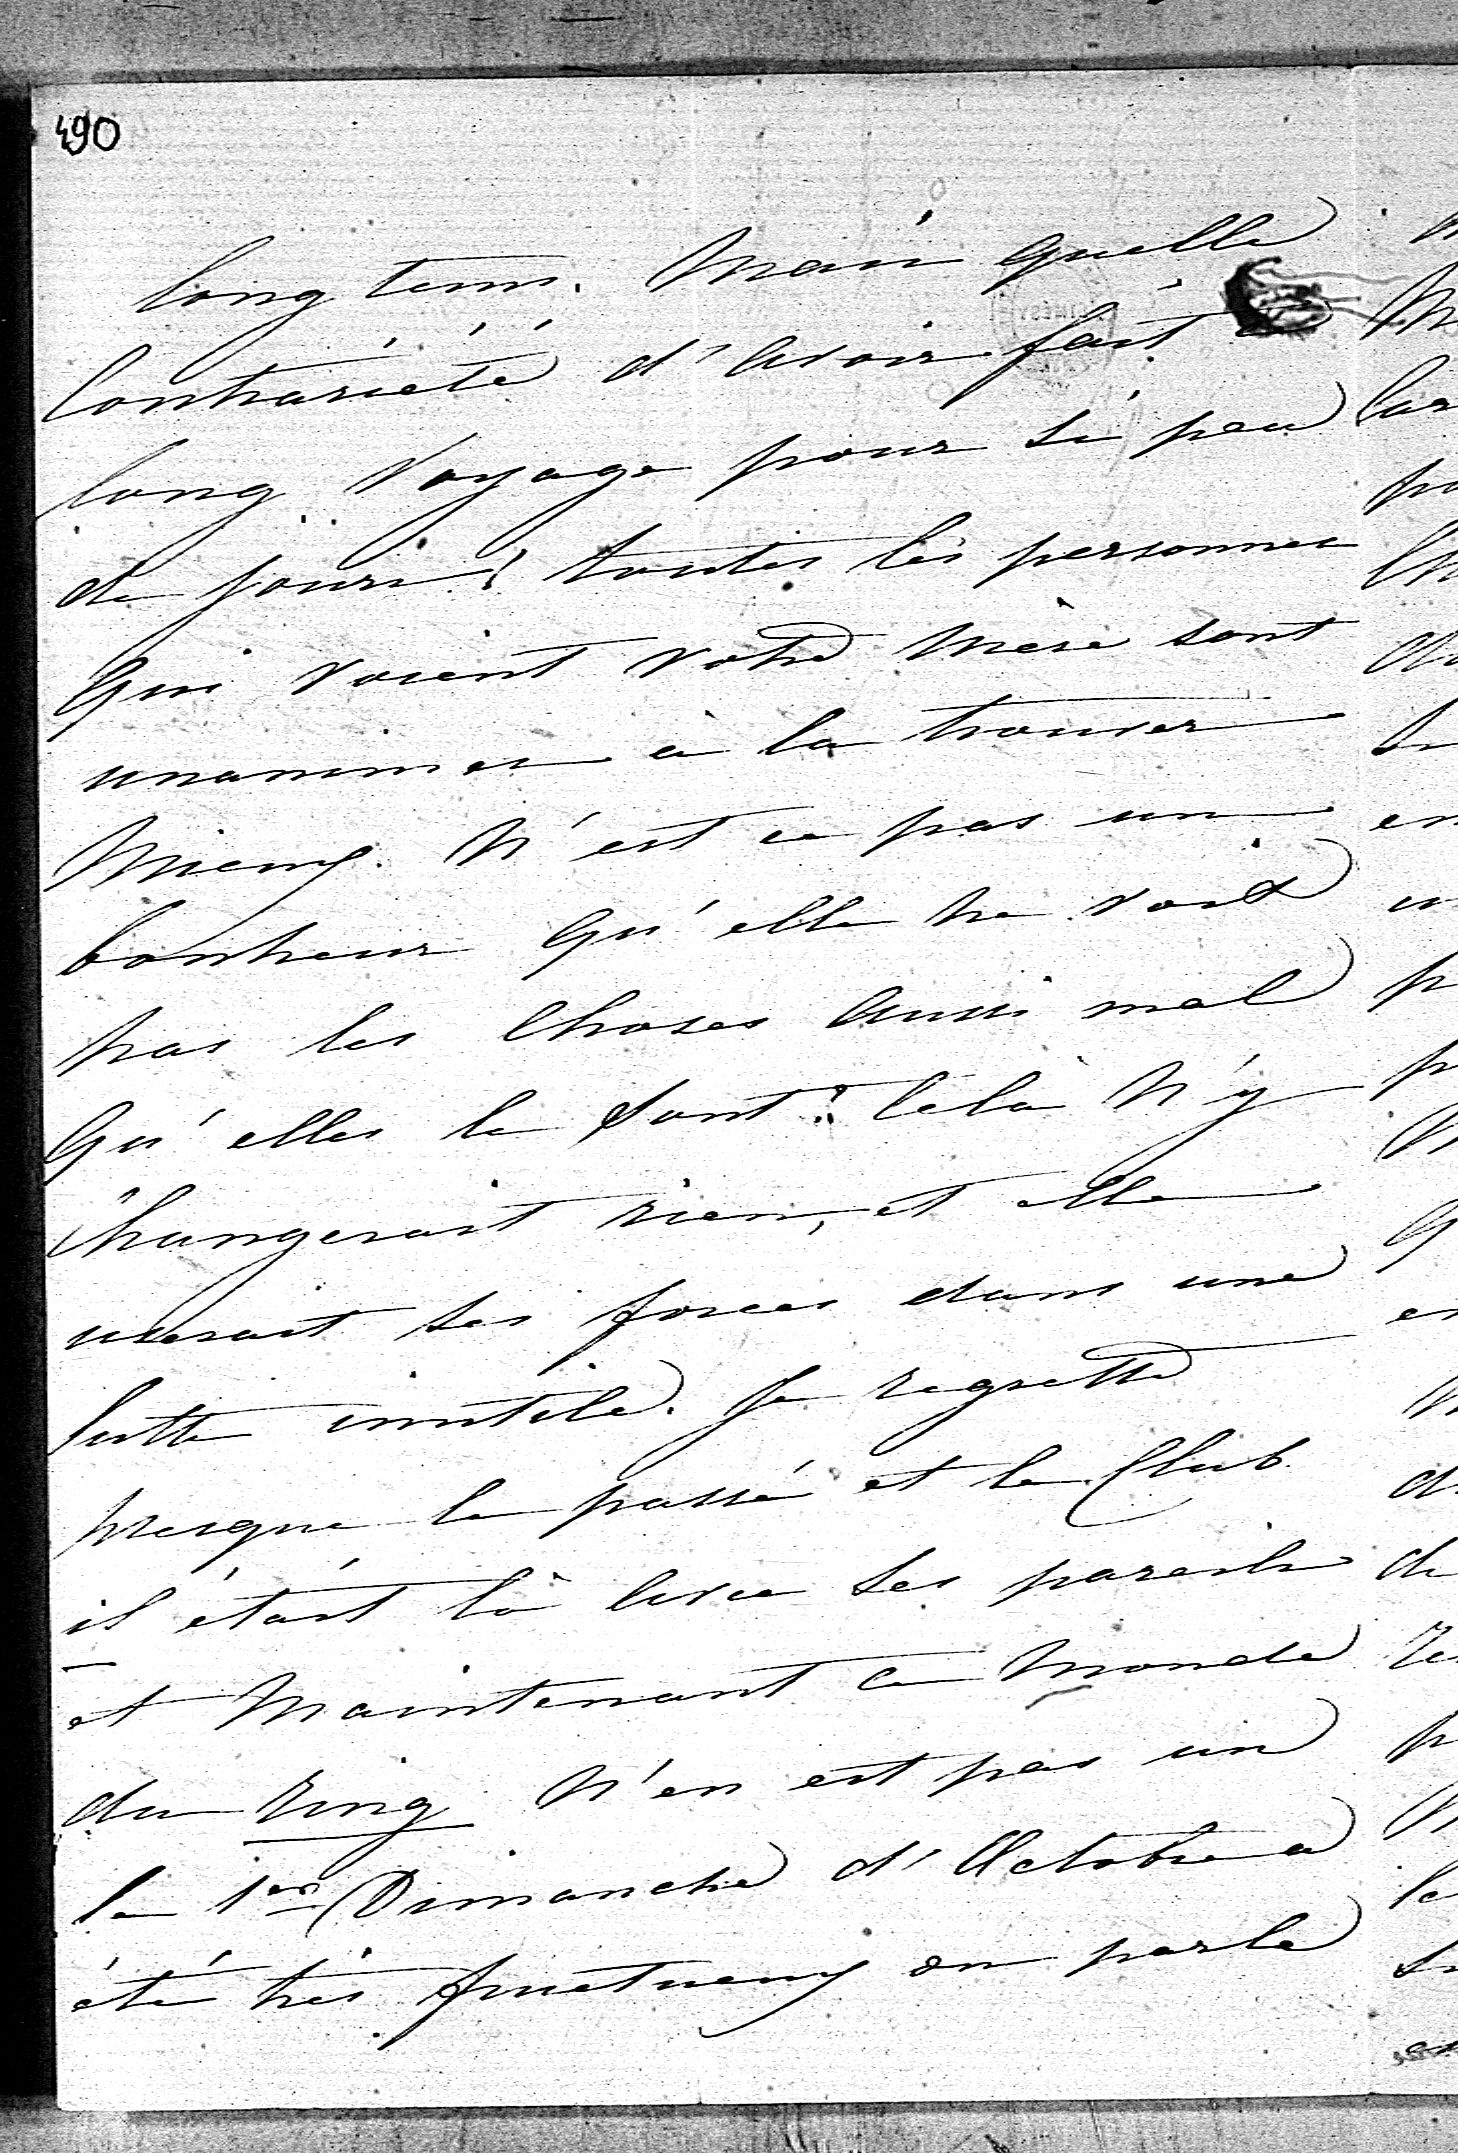 490
long tems. Mais quelle
Contrariété d'avoir fait
long voyage pour si peu
de jours! toutes les personnes
Qui voient votre Mère sont
unanimes à la trouver
Mieux. N'est ce pas un
bonheur Qu'elle ne voit
pas les Choses Aussi mal
Qu'elles le sont? Cela N'y
Changerait rien, et elle
userait ses forces dans une
lutte inutile. Je regrette
presque le passé et le Club
il était là avec ses pareils
et Maintenant ce Monde
du Ring N'en est pas un
le 1er Dimanche d'Octobre a
été très fructueux on parle